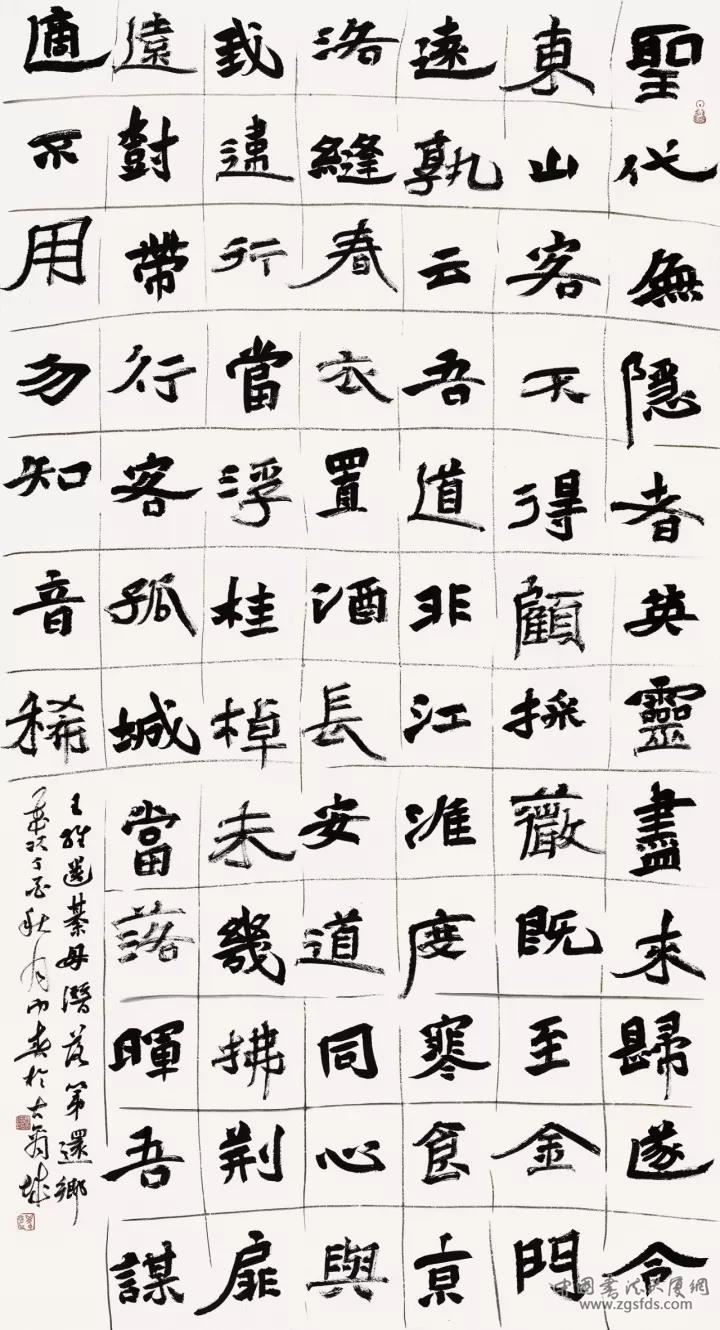 聖代無隱者英靈盡來歸遂令
東山客不得顧採薇既至金門
遠孰云吾道非江淮度寒食京
洛縫春衣置酒長安道同心與
我違行當浮桂棹未幾拂荊扉
遠樹帶行客孤城當落暉吾謀
適不用勿知音稀
王維送綦母潛落第還鄉
歲次丁酉秋月於古城
中國書法大廈網
www.zgsfds.com